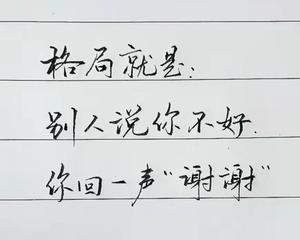 格局就是:
别人说你不好.
你回一声“谢谢”